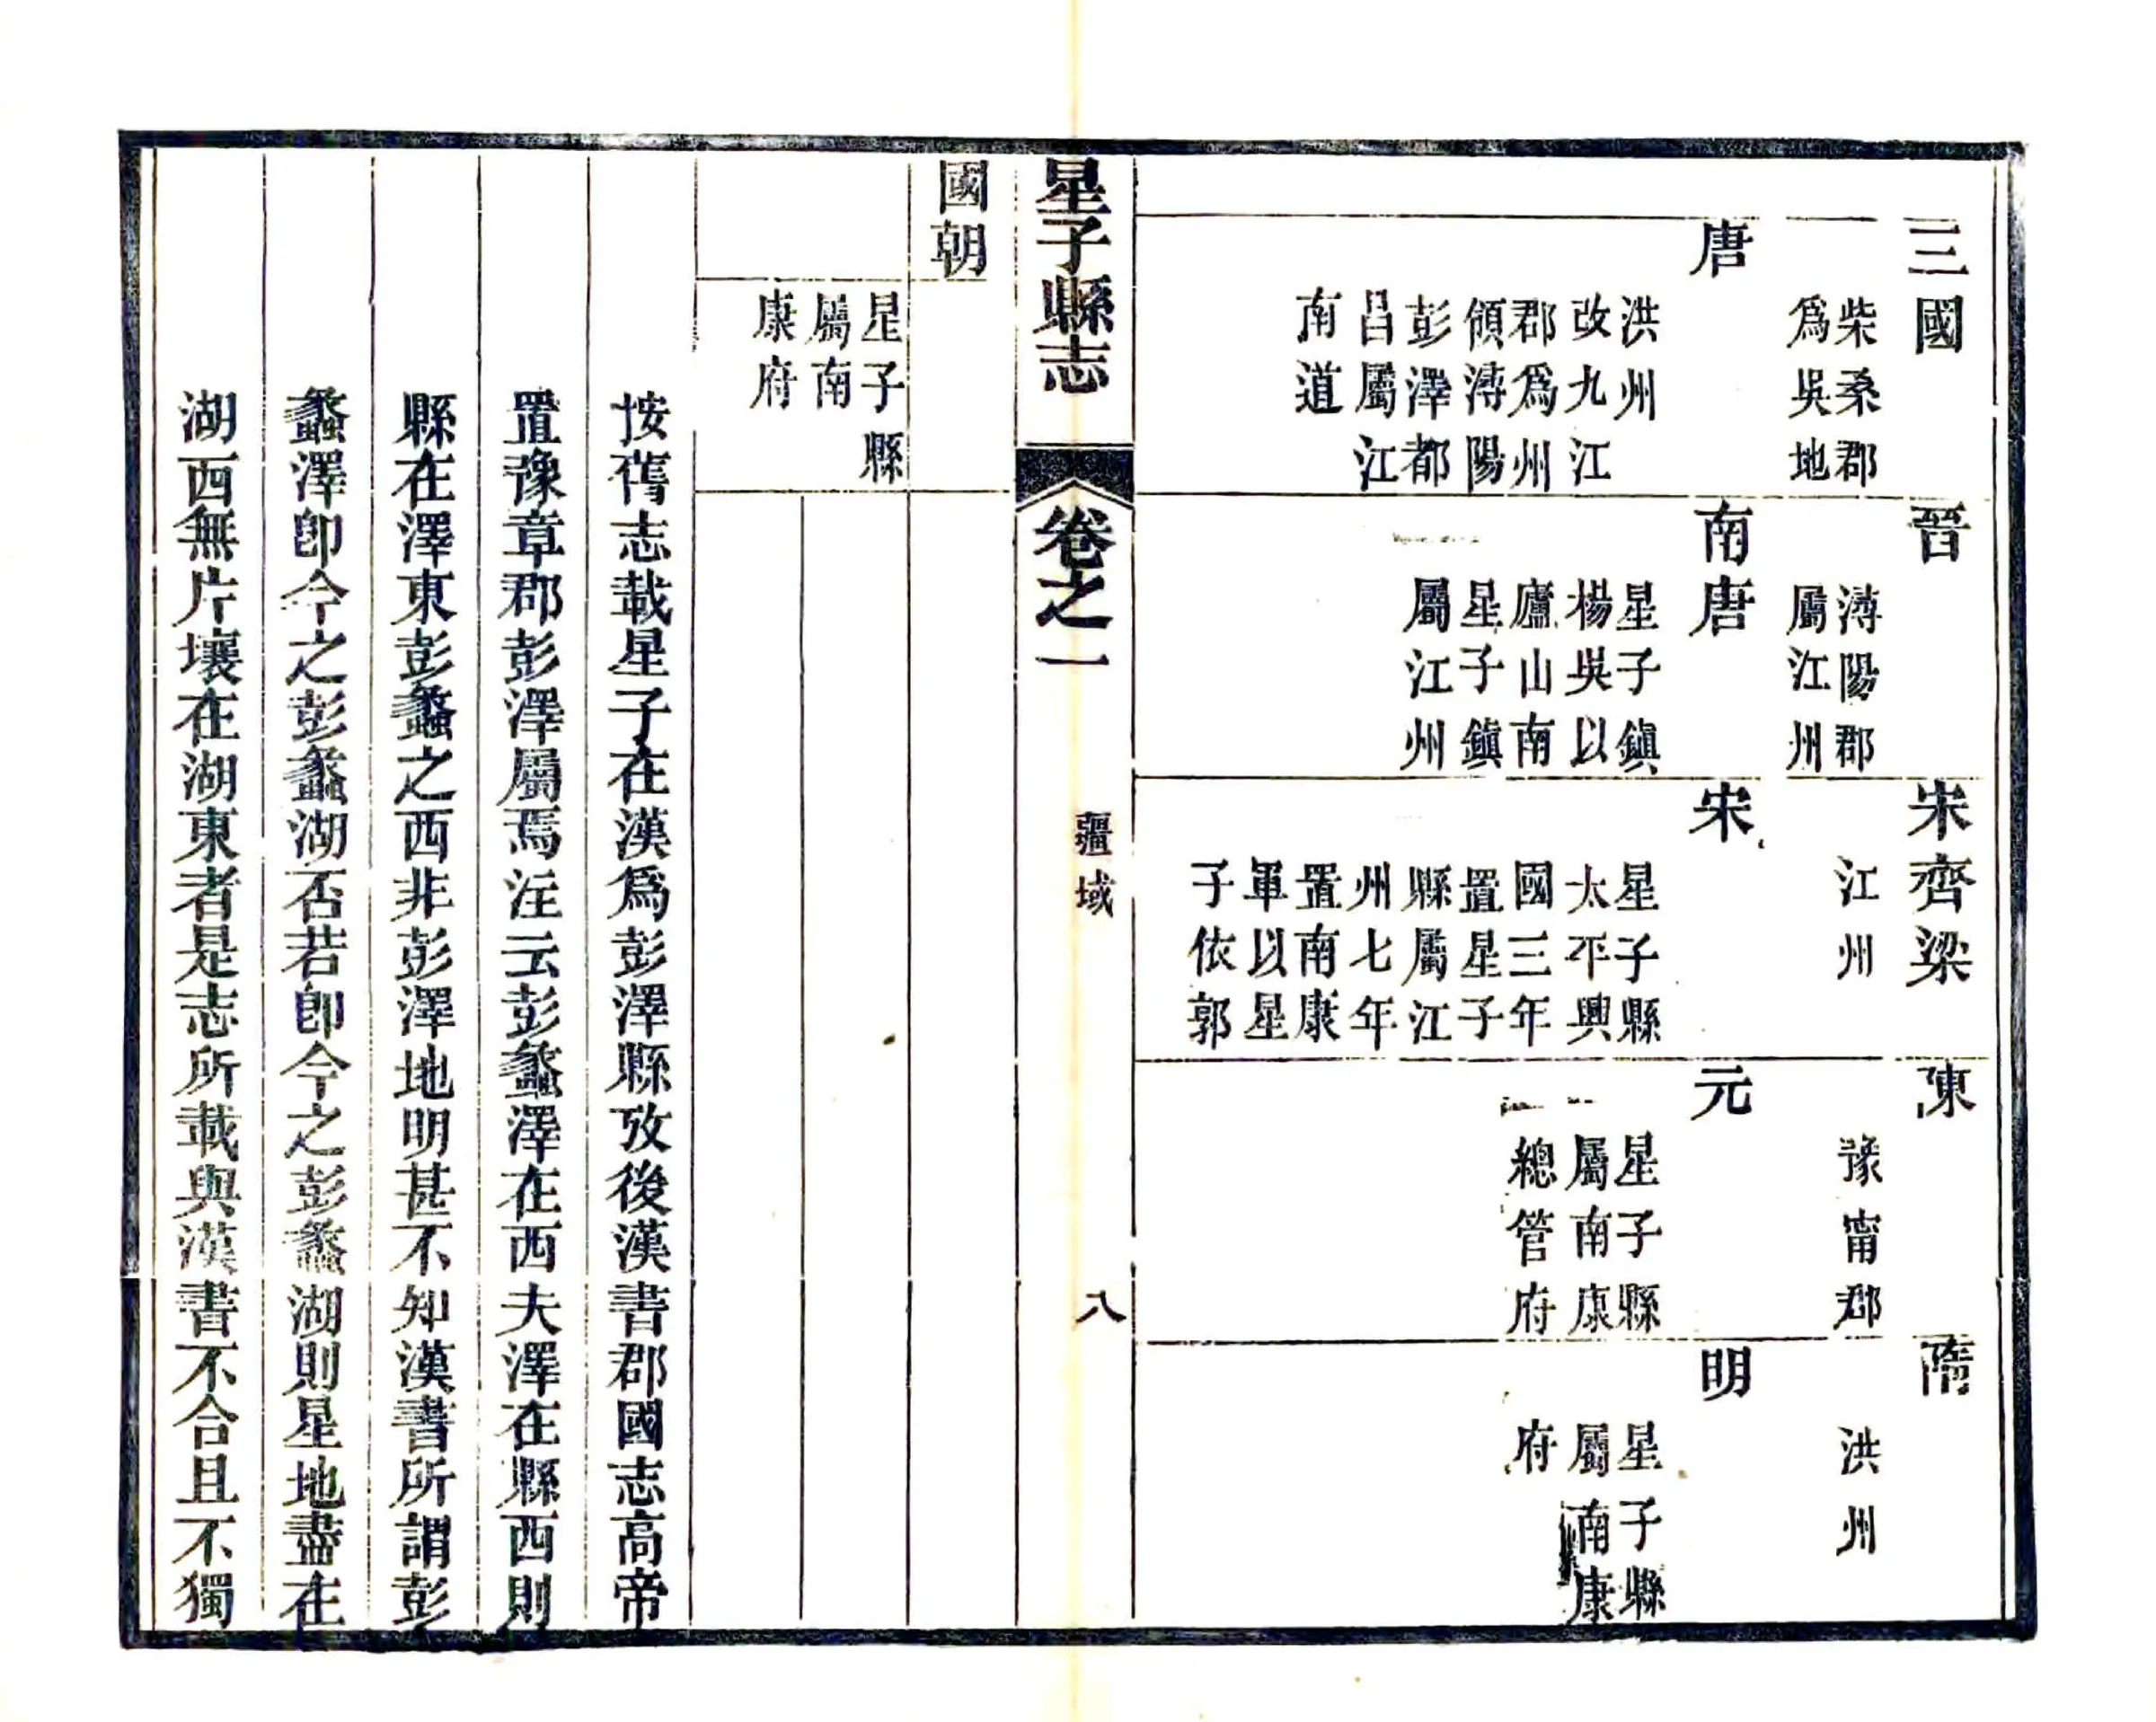 三國
柴桑郡
爲吳地
晉
潯陽郡
屬江州
宋齊梁
江州
陳
豫甯郡
隋
洪州
唐
洪州
改九江
郡爲州
領潯陽
彭澤都
昌屬江
南道
南唐
星子鎮
楊吳以
廬山南
星子鎮
屬江州
宋
星子縣
太平興
國三年
置星子
縣屬江
州七年
置南康
軍以星
子依郭
元
星子縣
屬南康
總管府
明
星子縣
屬南康
府
星子縣志 卷之一 疆域 八
國朝
星子縣
屬南
康府
按舊志載星子在漢爲彭澤縣攷後漢書郡國志高帝
置豫章郡彭澤屬焉注云彭蠡澤在西夫澤在縣西則
縣在澤東彭蠡之西非彭澤地明甚不知漢書所謂彭
蠡澤卽今之彭蠡湖否若卽今之彭蠡湖則星地盡在
湖西無片壤在湖東者是志所載與漢書不合且不獨